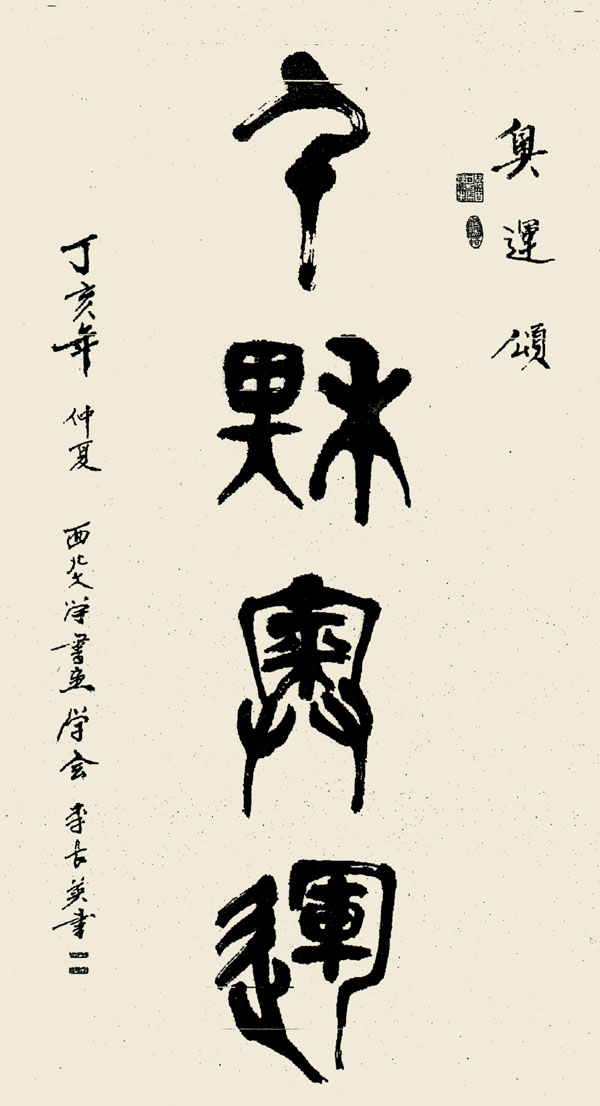 奥運頌
千秋奥運
丁亥年 仲夏 西北大学書画学会 李長英書